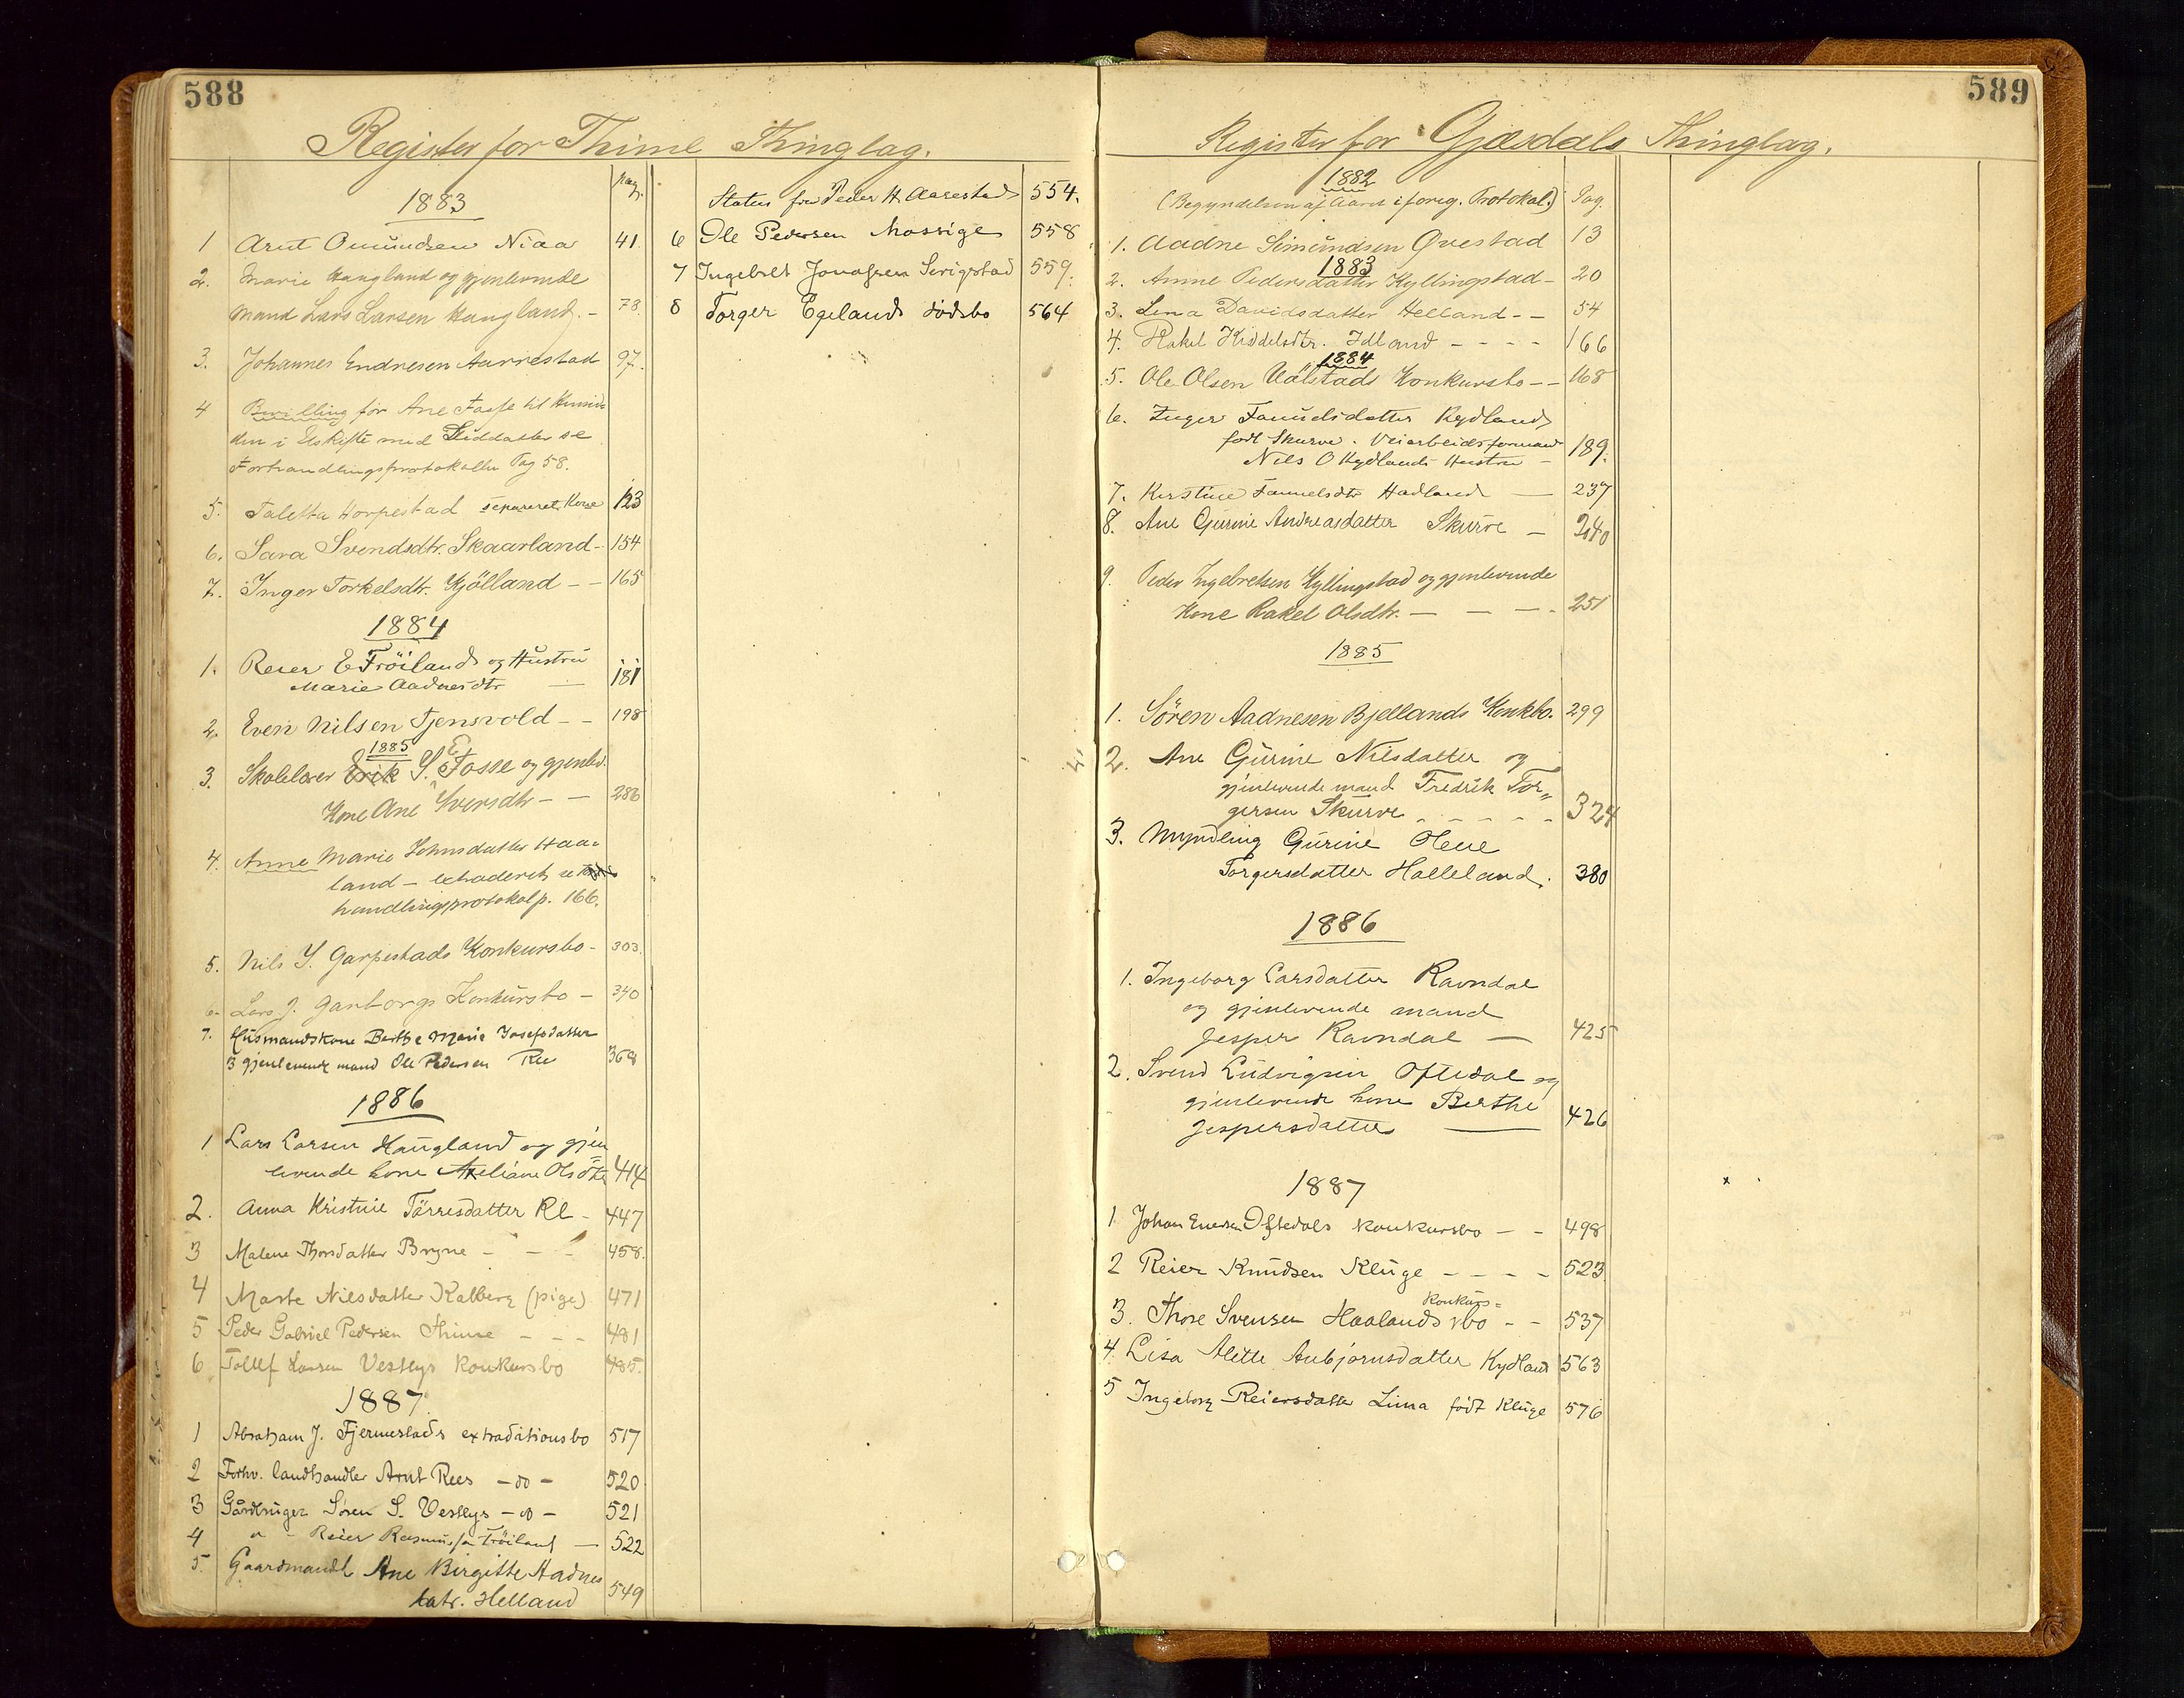 588
Register for Thime Thinglag.
pag.
1883
1 Arnt Omundsen Niaa 41
2. Marie Haugland og gjenlevende
Mand Lars Larsen Haugland. - 78
3. Johannes Endresen Aarrestad 97.
4 Bevilling for Ane Fosse til Hensid-
den i Uskifte med Stiddatter se
Forhandlingsprotokollen Pag 58.
5. Taletta Horpestad separeret Kone 123
6. Sara Svendsdtr. Skaarland - 154
7. Inger Torkelsdtr. Kjölland - - 165
1884
1. Reier E Fröiland og Hustru
Marie Aadnesdtr — 181
2. Even Nilsen Tjensvold - - 198
1885
3. Skolelærer Erik S. E. Fosse og gjenlev.
Kone Ane Iversdtr - - 286
4. Anne Marie Johnsdatter Haa-
land - extraderet, se For-
handlingsprotokol p. 166.
5. Nils Y. Garpestads Konkursbo - 303
6. Lars J. Garborgs Konkursbo - 340
7. Husmandskone Berthe Marie Josefsdatter
& gjenlevende mand Ole Pedersen Ree 368
1886
1 Lars Larsen Haugland og gjen
levende kone Axeliane Olsdtr 414
2. Anna Kristine Tørresdatter Re - 447
3 Malene Thorsdatter Bryne - - - 458.
4 Marte Nilsdatter Kalberg (pige) 471
5 Peder Gabriel Pedersen Thime - - - 481
6 Tollef Larsen Vestlys konkursbo 485.
1887.
1 Abraham J. Fjermestads extraditionsbo 517
2 Forhv. landhandler Arnt Rees - do - 520
3 Gårdbruger Søren S. Vestlys - do - 521
4 " - Reier Rasmussen Fröiland — 522
5. Gaardmandk Ane Birgitte Aadnes
datr. Helland 549
Status for Peder H. Aarestad 554.
6 Ole Pedersen Mossige 558
7 Ingebret Jonassen Serigstad 559.
8 Torger Egelands dödsbo 564
589
Register for Gjæsdals Thinglag.
1882
(Begyndelsen af Aaret i forrig. Protokol.) Pag.
1. Aadne Simundsen Øvestad 13
1883
2. Anne Pedersdatter Kyllingstad - 20
3. Lena Davidsdatter Helland - - 54
4. Rakel Kiddelsdtr. Idland - - - - 166
1884
5. Ole Olsen Ualstads Konkursbo - - 168
6. Inger Samuelsdatter Kydland
født Skurve. Veiarbeidsformand
Nils O Kydlands Hustru - 189.
7. Kirstine Samuelsdtr Hadland — 237
8. Ane Gurine Andreasdatter Skurve - 240
9. Peder Ingebretsen Kyllingstad og gjenlevende
Kone Rakel Olsdtr. - - - - 251
1885
1. Sören Aadnesen Bjellands Konkbo. 299
2. Ane Gurine Nilsdatter og
gjenlevende mand Fredrik Tor„
gersen Skurve - - - - - 324
3. Myndling Gurine Olene
Torgersdatter Halleland. 380
1886
1. Ingeborg Larsdatter Ravndal
og gjenlevende mand
Jesper Ravndal — 425
2. Svend Ludvigsen Oftedal og
gjenlevende kone Berthe
Jespersdatter — 426
1887
1 Johan Enersen Oftedals konkursbo - - 498
2 Reier Knudsen Kluge - - - - 523
3. Thore Svensen Haalands konkurs=
bo - - 537
4. Lisa Alette Aubjørnsdatter Kydland 563
5 Ingeborg Reiersdatter Lima født Kluge 576